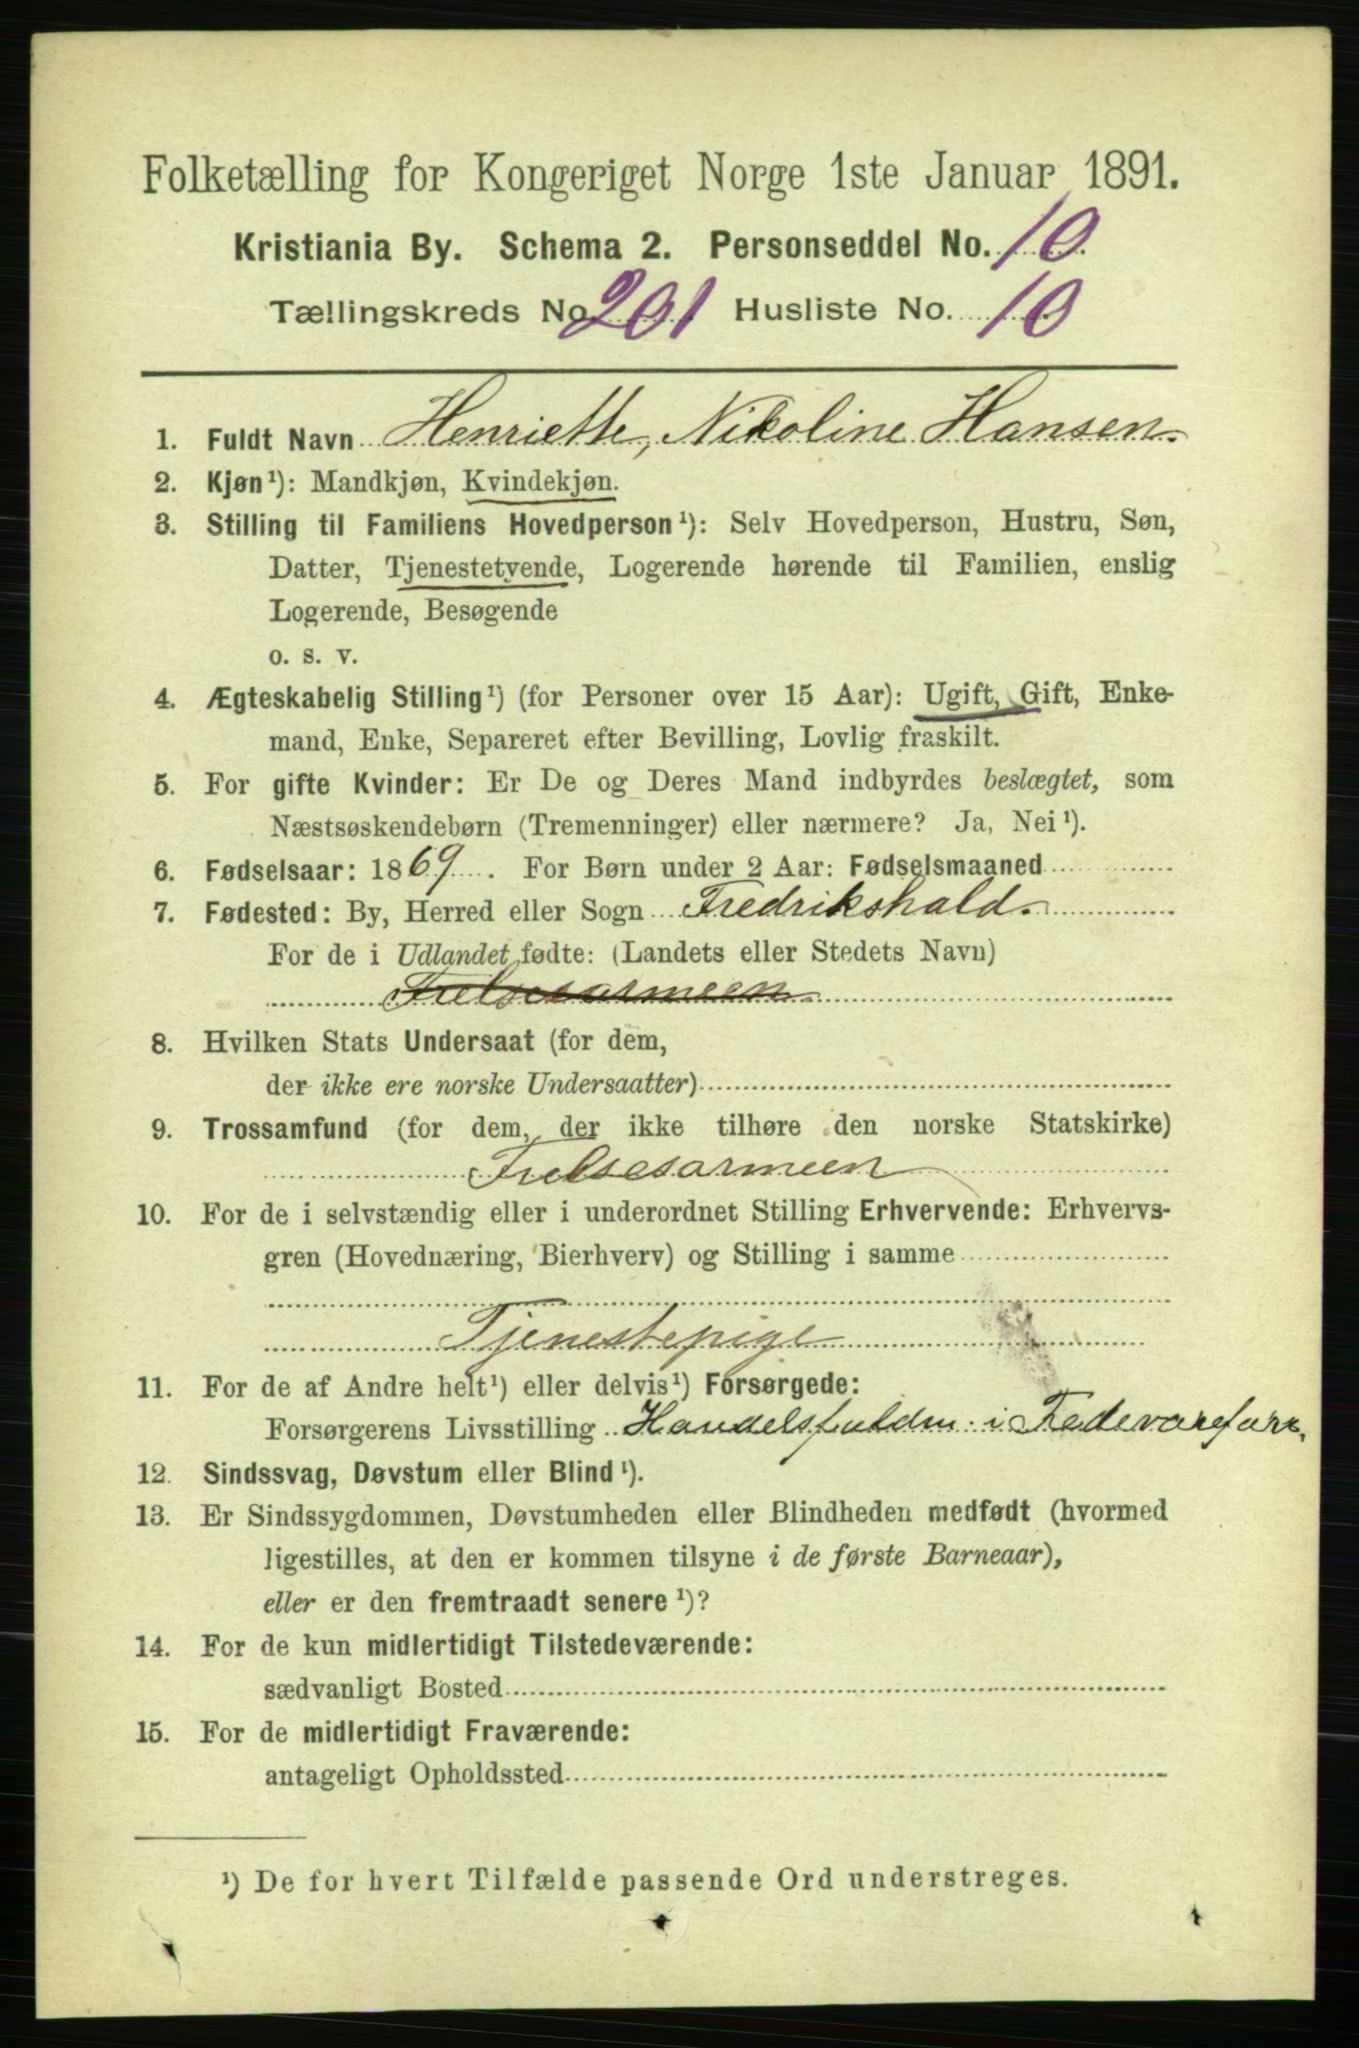 Folketælling for Kongeriget Norge 1ste Januar 1891.
Kristiania By. Schema 2. Personseddel No. 10
Tællingskreds No. 201 Husliste No. 10
1. Fuldt Navn Henriette, Nikoline Hansen.
2. Kjøn¹): Mandkjøn, Kvindekjøn.
3. Stilling til Familiens Hovedperson¹): Selv Hovedperson, Hustru, Søn,
Datter, Tjenestetyende, Logerende hørende til Familien, enslig
Logerende, Besøgende
o. s. v.
4. Ægteskabelig Stilling¹) (for Personer over 15 Aar): Ugift, Gift, Enke-
mand, Enke, Separeret efter Bevilling, Lovlig fraskilt.
5. For gifte Kvinder: Er De og Deres Mand indbyrdes beslægtet, som
Næstsøskendebørn (Tremenninger) eller nærmere? Ja, Nei¹).
6. Fødselsaar: 1869. For Børn under 2 Aar: Fødselsmaaned
7. Fødested: By, Herred eller Sogn Fredrikshald.
For de i Udlandet fødte: (Landets eller Stedets Navn)
Frelsesarmeen.
8. Hvilken Stats Undersaat (for dem,
der ikke ere norske Undersaatter)
9. Trossamfund (for dem, der ikke tilhøre den norske Statskirke)
Frelsesarmeen
10. For de i selvstændig eller i underordnet Stilling Erhvervende: Erhvervs-
gren (Hovednæring, Bierhverv) og Stilling i samme
Tjenestepige
11. For de af Andre helt¹) eller delvis¹) Forsørgede:
Forsørgerens Livsstilling Handelsfuldm. i Fedevareforr.
12. Sindssvag, Døvstum eller Blind¹).
13. Er Sindssygdommen, Døvstumheden eller Blindheden medfødt (hvormed
ligestilles, at den er kommen tilsyne i de første Barneaar),
eller er den fremtraadt senere¹)?
14. For de kun midlertidigt Tilstedeværende:
sædvanligt Bosted
15. For de midlertidigt Fraværende:
antageligt Opholdssted
¹) De for hvert Tilfælde passende Ord understreges.